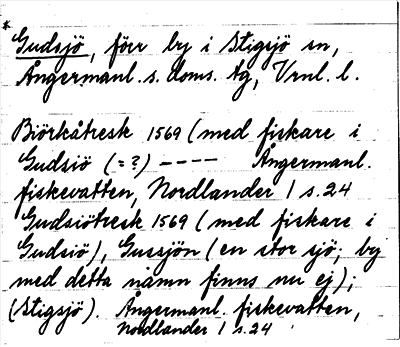 * Gudsjö, förr by i Stigsjö sn,
Ångermanl. s. doms. tg, Vrnl. l.
Biörkåtresk 1569 (med fiskare i
Gudsiö (=?) ---- Ångermanl.
fiskevatten, Nordlander 1 s. 24
Gudsiötresk 1569 (med fiskare i
Gudsiö), Gussjön (en stor sjö; by
med detta namn finns nu ej);
(Stigsjö). Ångermanl. fiskevatten,
Nordlander 1 s. 24